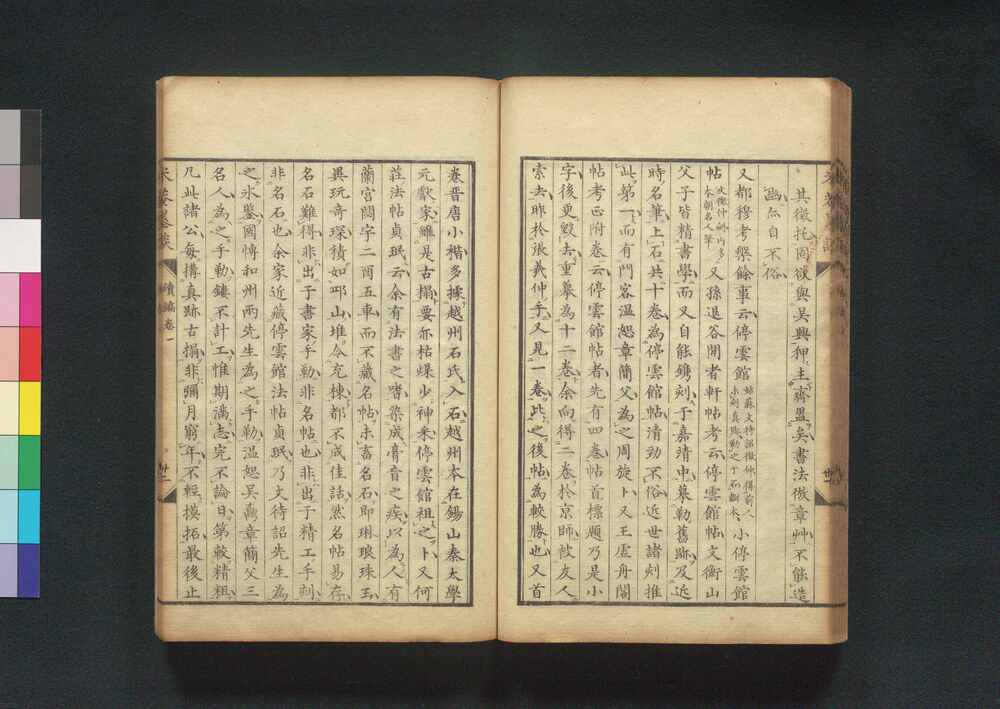 其徵托固欲與吳興狎主齊盟矣書法倣章艸不能造
幽亦自不俗
又都穆考槃餘事云停雲館姑蘇文待詔徵仲得前人未刻真跡勒之于石劂本小停雲館
帖文徵仲刻內多本朝名人筆又孫退谷閒者軒帖考云停雲館帖文衡山
父子皆精書學而又自能鐫刻于嘉靖中摹勒舊跡及近
時名筆上石共十卷為停雲館帖清勁不俗近世諸刻推
此第一而有門客溫恕章簡父為之周旋卜又王虛舟閣
帖考正附卷云停雲館帖者先有四卷帖首標題乃是小
字後更毀去重摹為十二卷余向得二卷於京師被友人
索去昨於張義仲手又見一卷比之後帖為較勝也又首
卷晉唐小楷多據越州石氏入石越州本在錫山秦太學
元獻家雖是古搨要亦枯燥少神采停雲館祖之卜又何
莊法帖貞珉云余有法書之嗜築成膏肓之疾以為人有
蘭宮閟宇二酉五車而不藏名帖未畜名石即琳琅珠玉
異玩奇琛積如邛山堆令充棟都不成佳話然名帖易存
名石難得非出于書家手勒非名帖也非出于精工手刻
非名石也余家近藏停雲館法帖貞珉乃文待詔先生為
之氷鑒國博和州兩先生為之手勒溫恕吳鼒章簡父三
名人為之手勒鏤不計工惟期滿志完不論日第較精粗
凡此諸公每搆真跡古搨非彌月窮年不輕摸拓最後止
米菴墨談 續編卷一